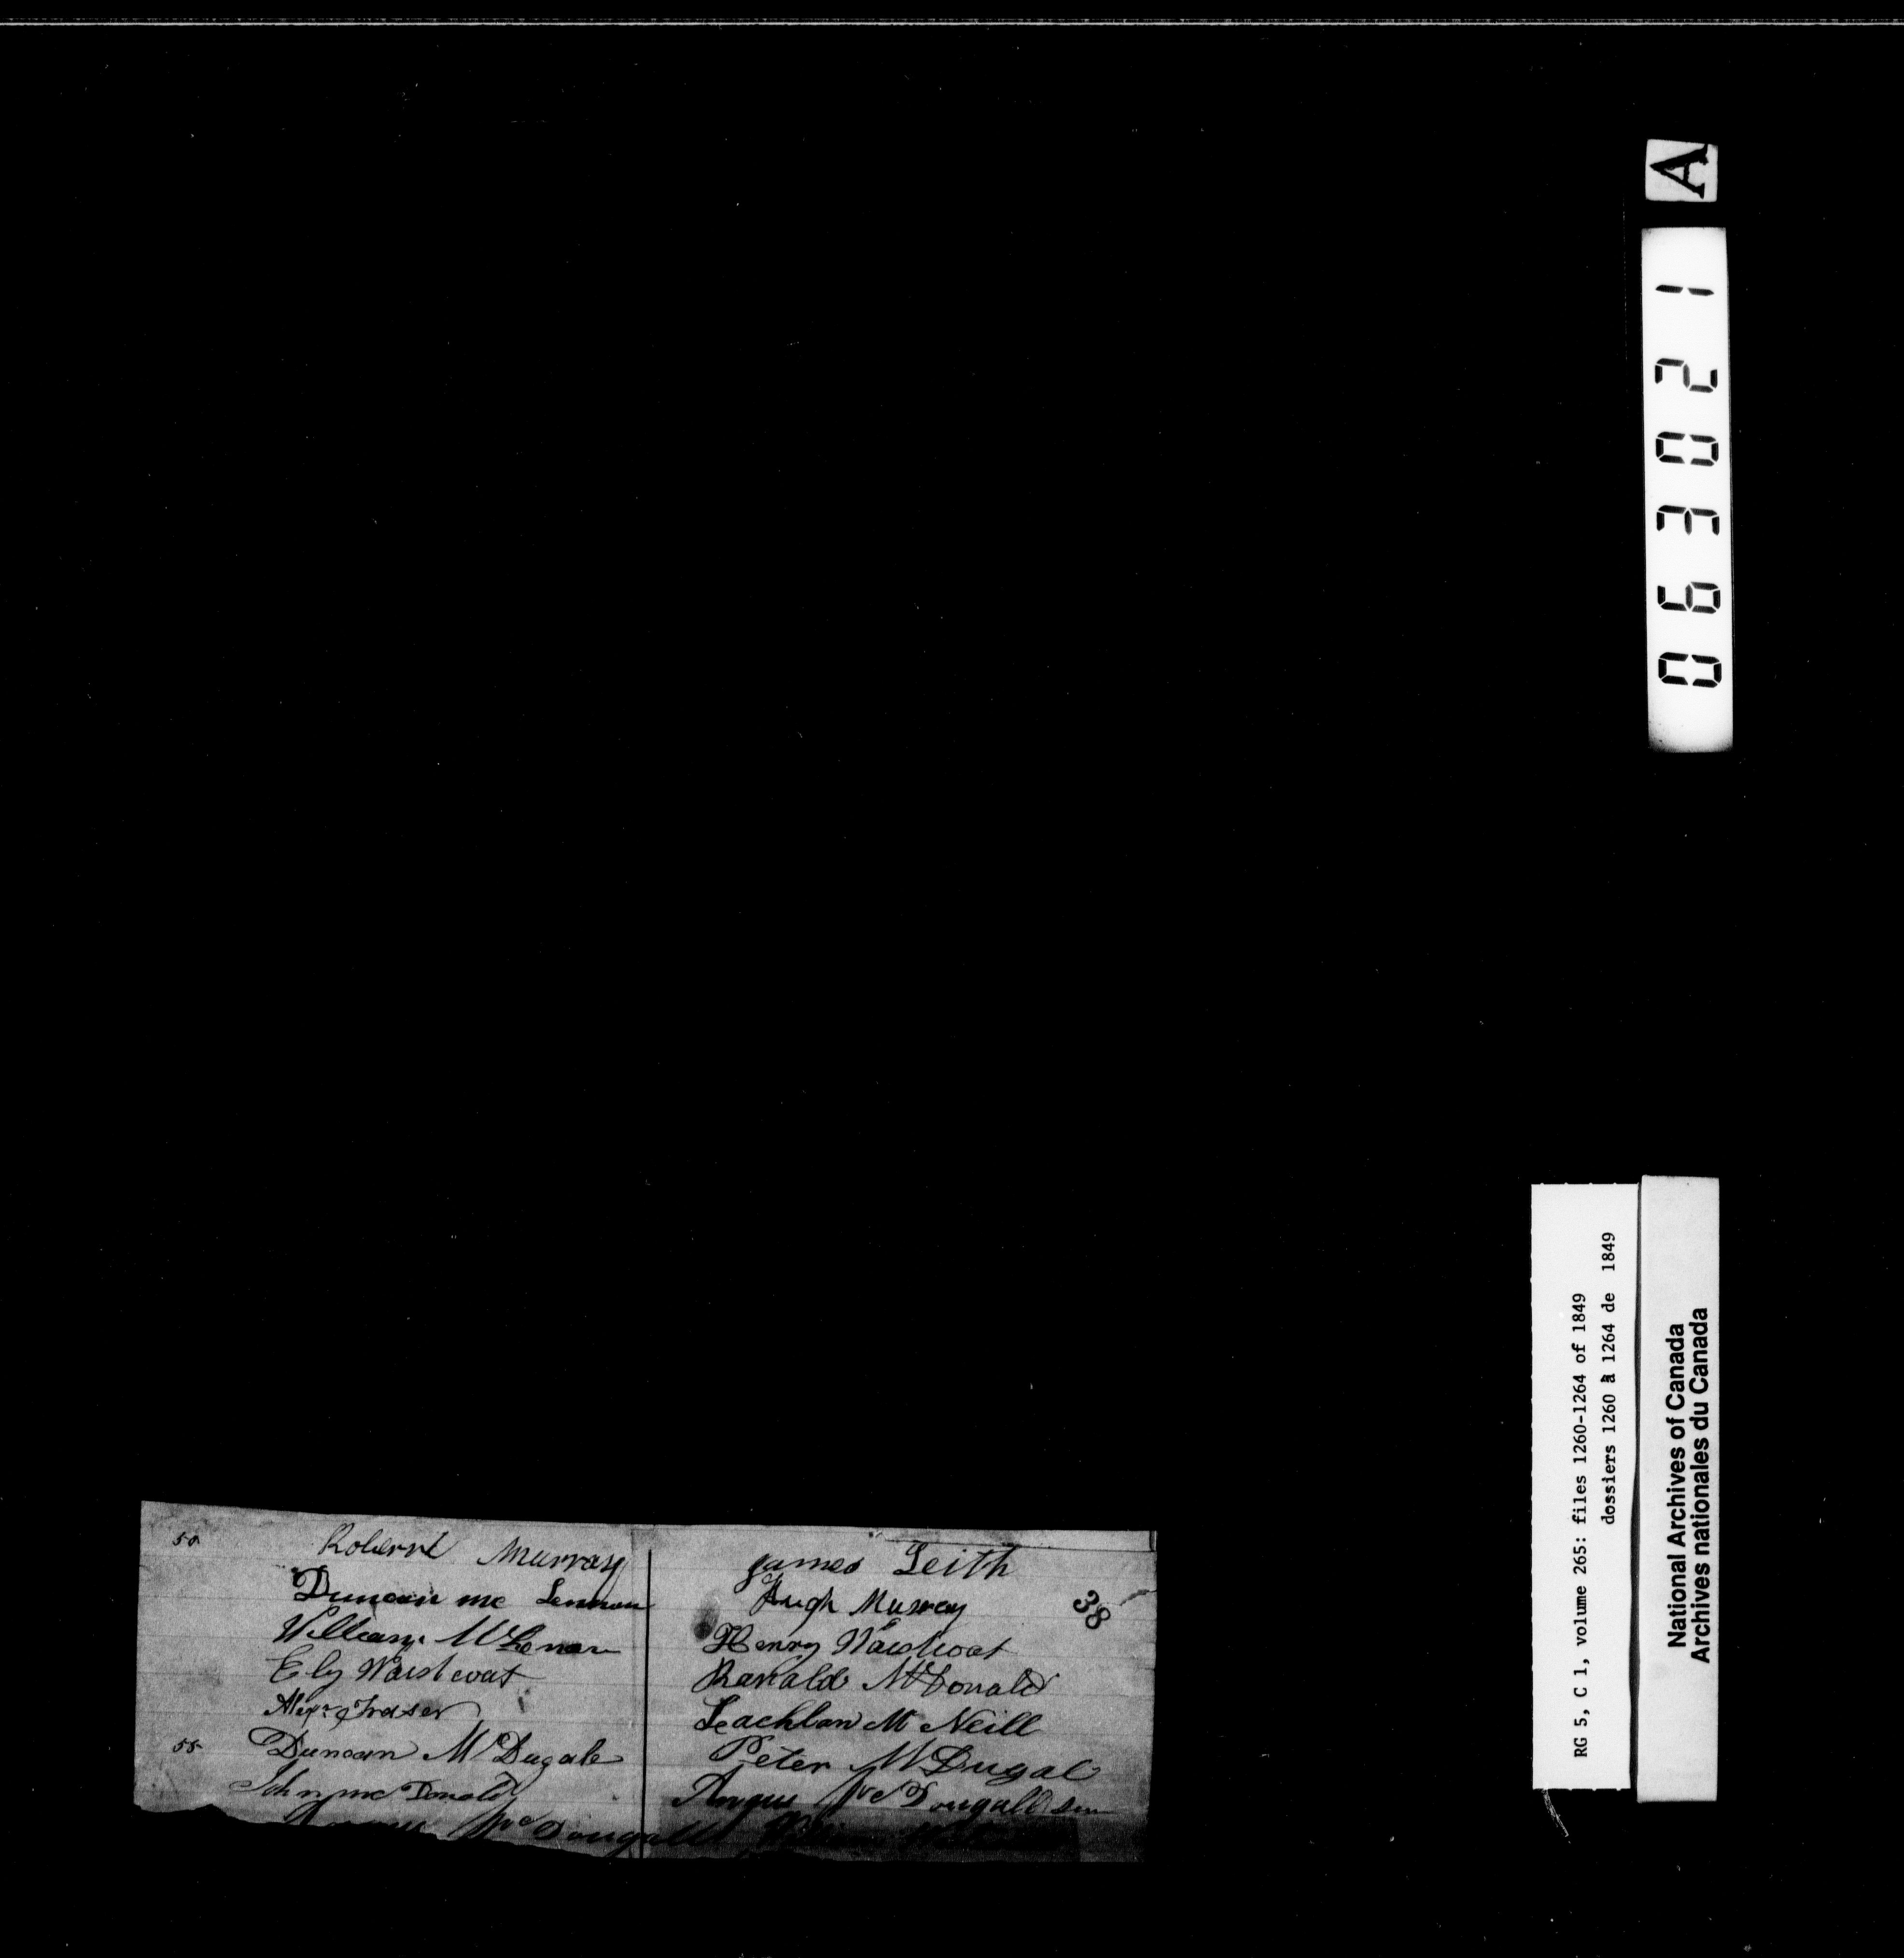 A
063021
RG 5, C 1, volume 265: files 1260-1264 of 1849
dossiers 1260 à 1264 de 1849
National Archives of Canada
Archives nationales du Canada
50 Roberrt Murray
Duncan mc Lennan
William McLenan
Ely Waistcoat
Alexr Fraser
55 Duncan McDugale
John mc Donald
McDougall
James Leith
Hugh Murray
38
Henry Waistcoat
Ranald McDonald
Leachlan McNeill
Peter McDugal
Angus McDougall sen